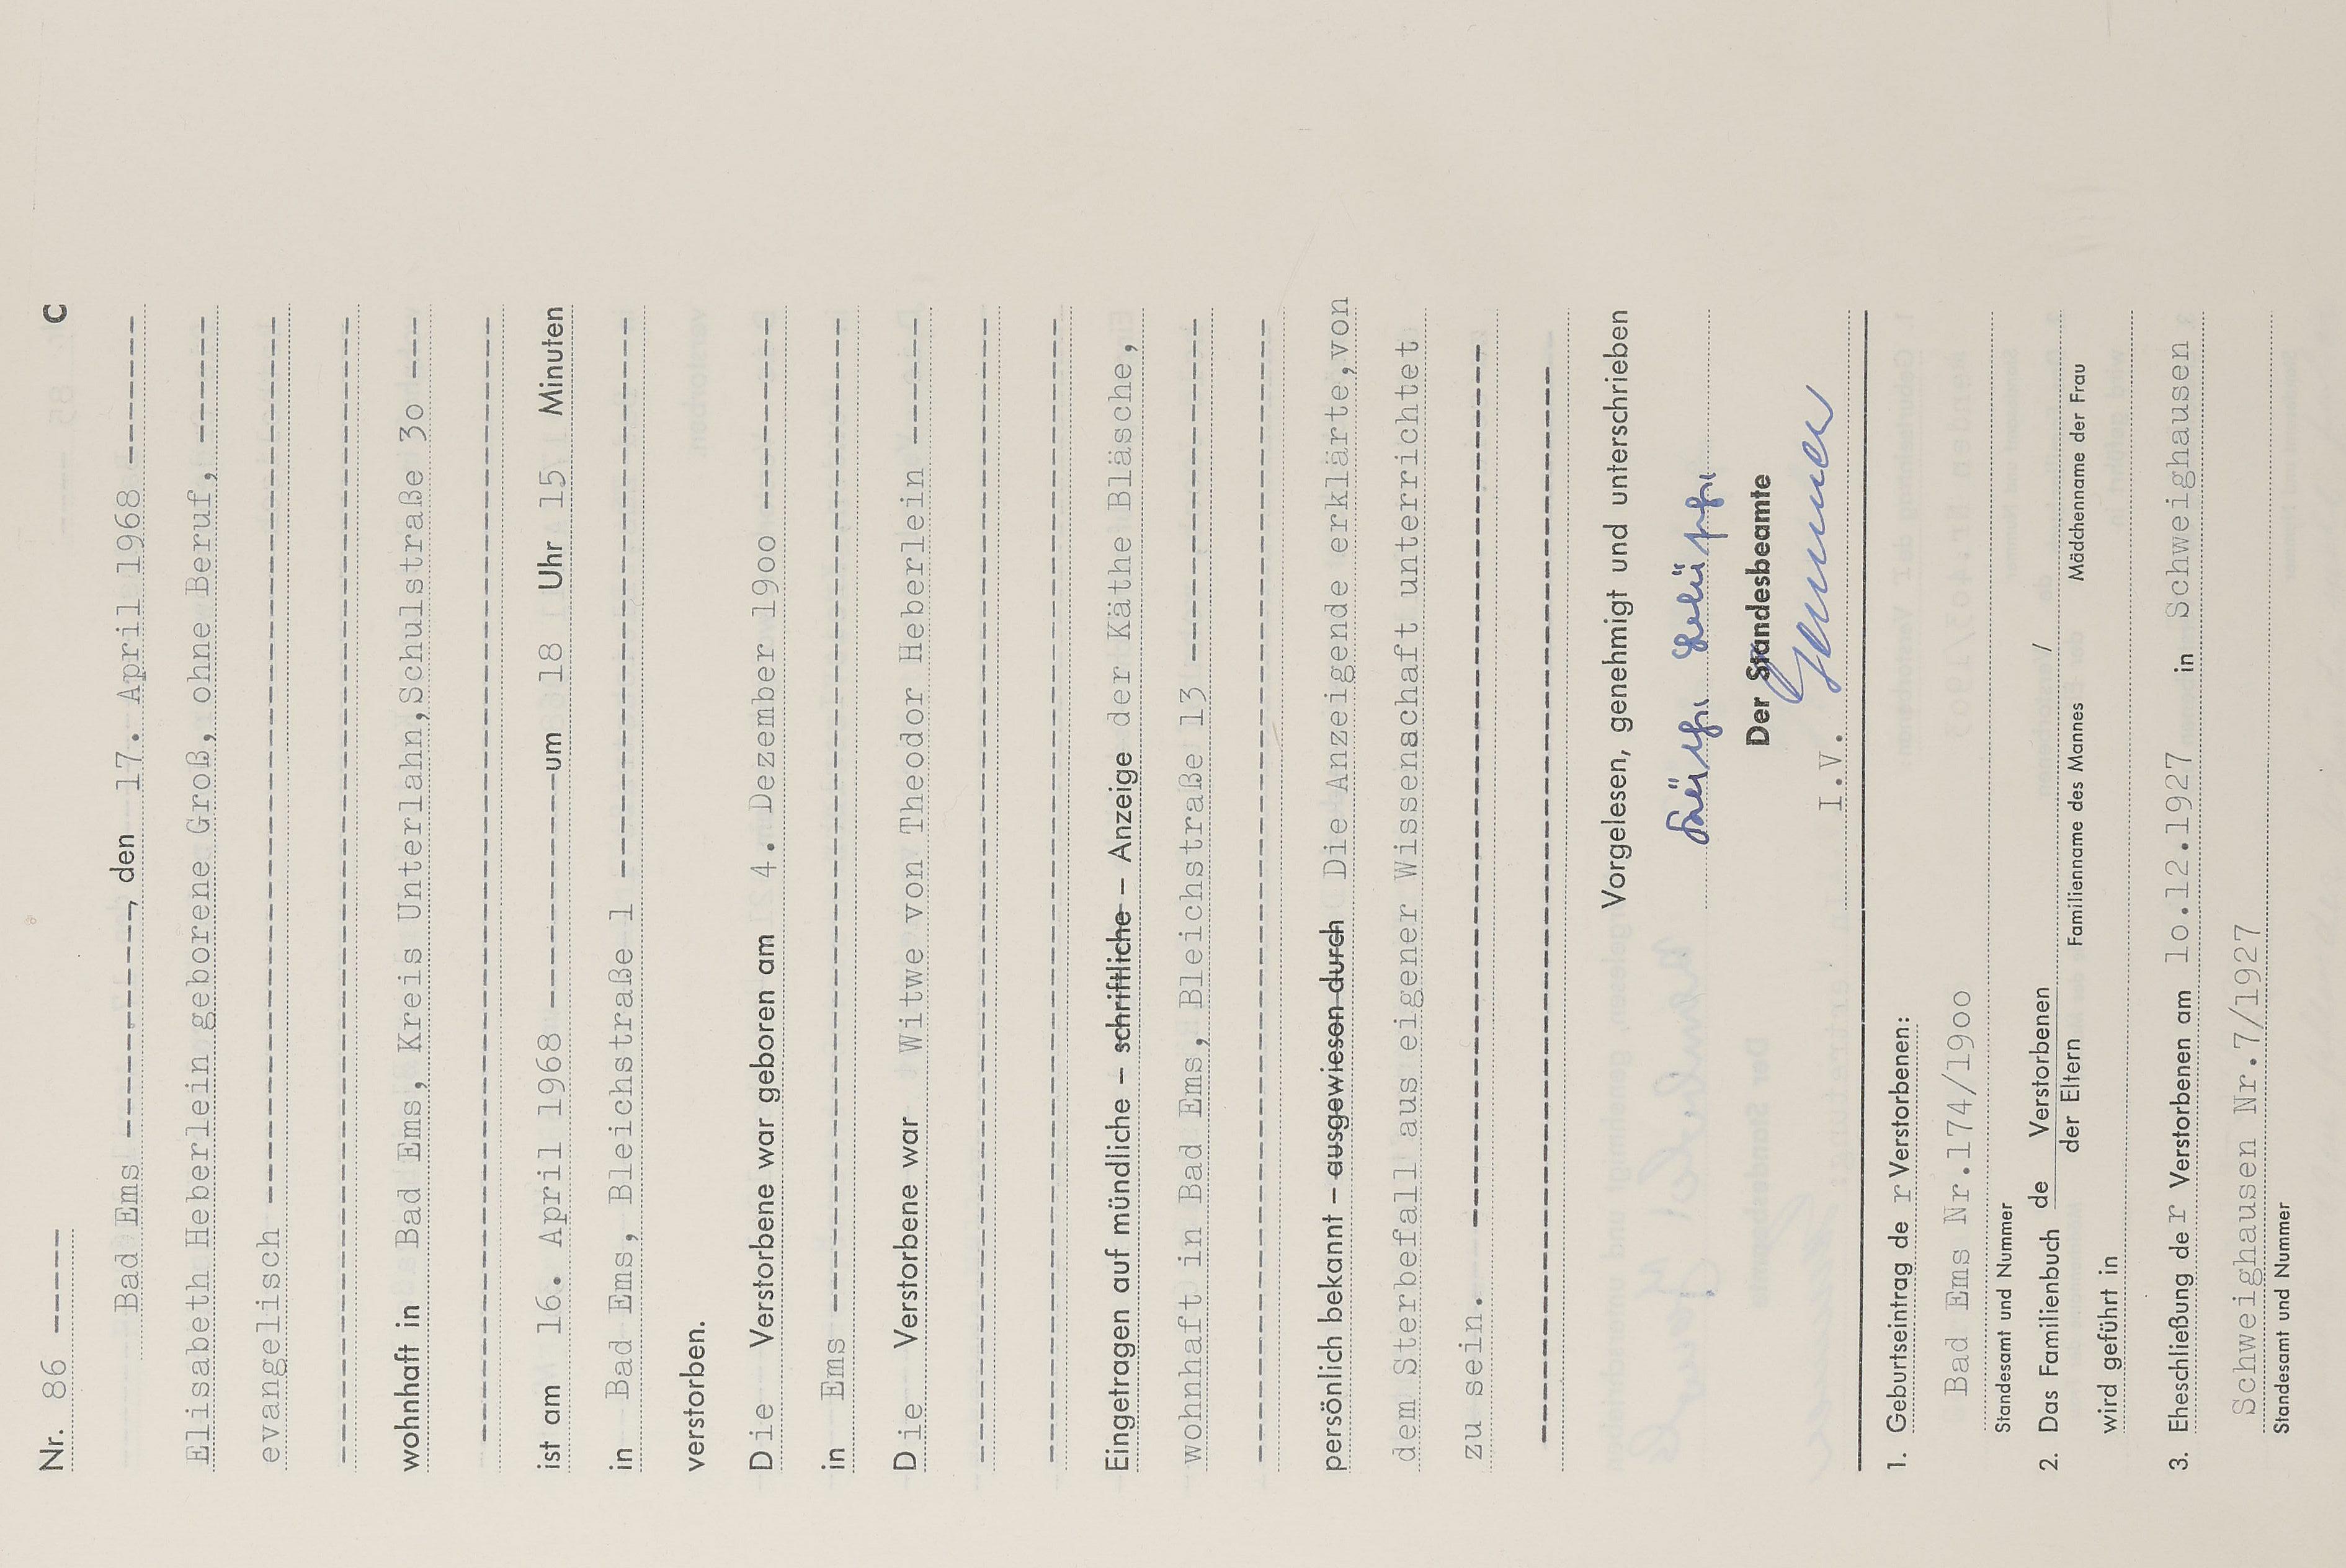 Nr. 86 -----
C
Bad Ems ----------------, den 17. April 1968 ---------
Elisabeth Heberlein geborene Groß, ohne Beruf, -----
evangelisch ------------------------------------------
wohnhaft in Bad Ems, Kreis Unterlahn,Schulstraße 3o ----
ist am 16. April 1968 --------------um 18 Uhr 15 Minuten
in Bad Ems, Bleichstraße 1 ------------------------
verstorben.
Die Verstorbene war geboren am 4. Dezember 19oo ---------
in Ems ----------------------------------------------
Die Verstorbene war Witwe von Theodor Heberlein -----
Eingetragen auf mündliche – schriftliche – Anzeige der Käthe Bläsche,
wohnhaft in Bad Ems, Bleichstraße 13 ---------------
persönlich bekannt – ausgewiesen durch Die Anzeigende erklärte,von
dem Sterbefall aus eigener Wissenschaft unterrichtet
zu sein. ------------------------------------------
Vorgelesen, genehmigt und unterschrieben
Der Standesbeamte
I.V.
1. Geburtseintrag de r Verstorbenen:
Bad Ems Nr.174/19oo
Standesamt und Nummer
2. Das Familienbuch de Verstorbenen /
der Eltern Familienname des Mannes Mädchenname der Frau
wird geführt in
3. Eheschließung de r Verstorbenen am 1o.12.1927 in Schweighausen
Schweighausen Nr.7/1927
Standesamt und Nummer